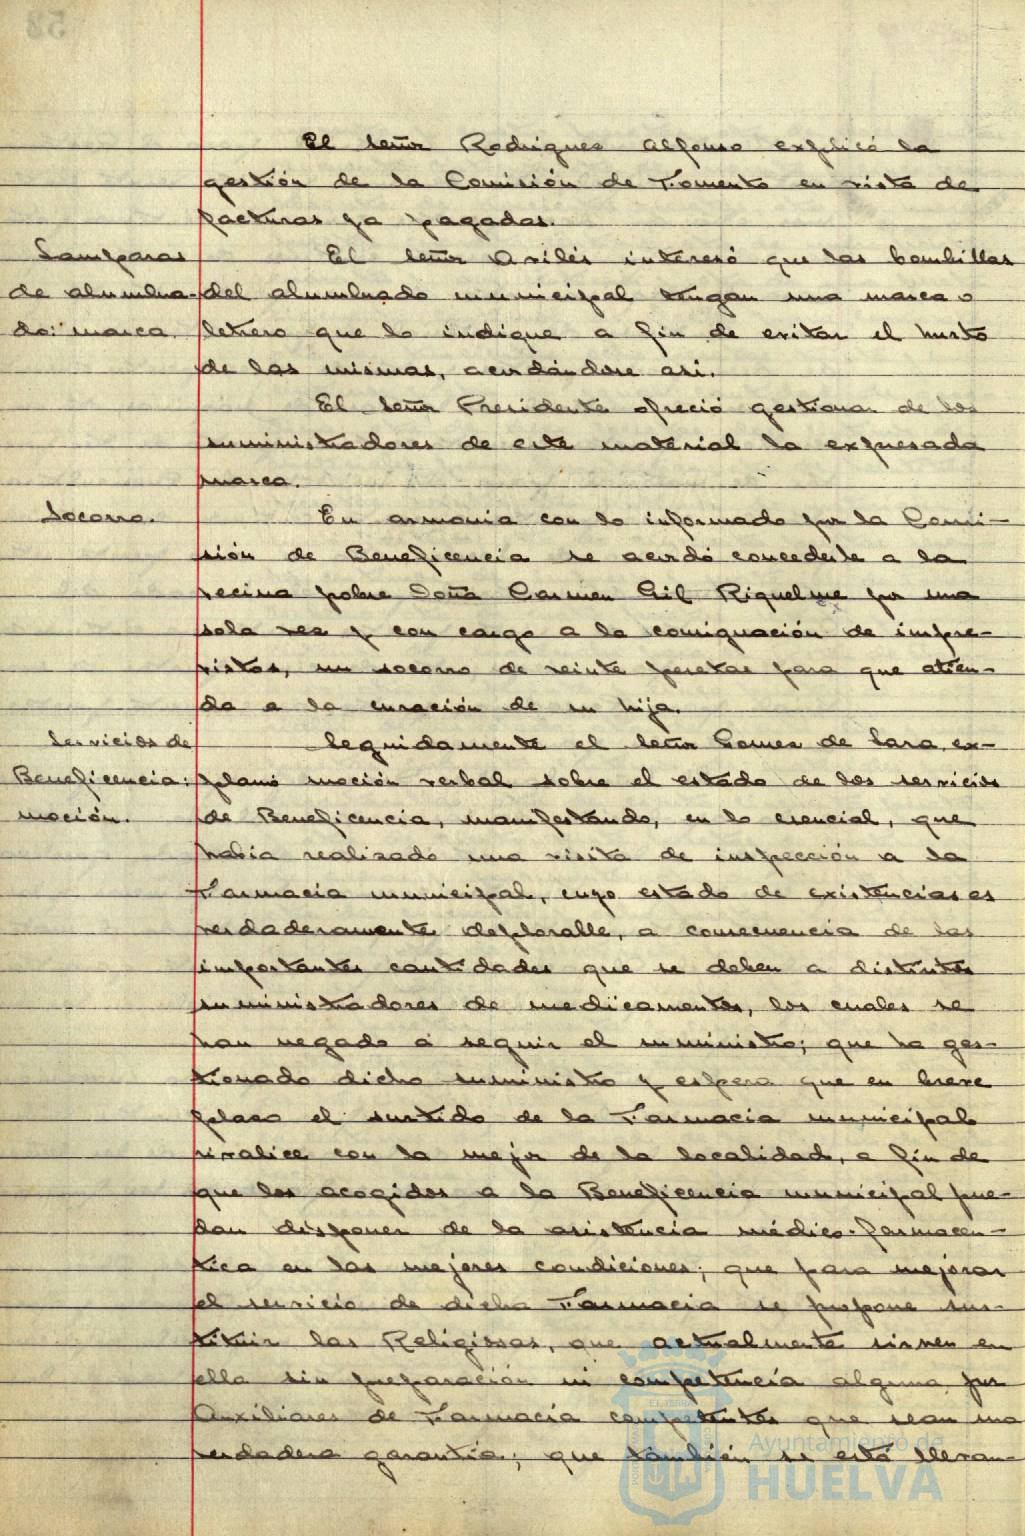 El señor Rodrigues Alfonso explicó la
gestión de la Comisión de Fomento en vista de
facturas ya pagadas.
Lamparas
de alumbra-
do: marca.
El señor Avilés interesó que las bombillas
del alumbrado municipal tengan una marca o
letrero que lo indique a fin de evitar el hurto
de las mismas, acordándose asi.
El señor Presidente ofreció gestionar de los
suministradores de este material la expresada
marca.
Socorro.
En armonia con lo informado por la Comi-
sión de Beneficencia se acordó concederle a la
vecina pobre Doña Carmen Gil Riquelme por una
sola vez y con cargo a la consignación de impre-
vistos, un socorro de veinte pesetas para que atien-
da a la curación de su hija.
Servicios de
Beneficencia:
moción.
Seguidamente el señor Gomez de Lara, ex-
planó moción verbal sobre el estado de los servicios
de Beneficencia, manifestando, en lo esencial, que
habia realizado una visita de inspección a la
Farmacia municipal, cuyo estado de existencias es
verdaderamente deplorable, a consecuencia de las
importantes cantidades que se deben a distintos
suministradores de medicamentos, los cuales se
han negado a seguir el suministro; que ha ges-
tionado dicho suministro y espera que en breve
plazo el surtido de la Farmacia municipal
rivalice con la mejor de la localidad, a fin de
que los acogidos a la Beneficencia municipal pue-
dan disponer de la asistencia médico-farmaceu-
tica en las mejores condiciones; que para mejorar
el servicio de dicha Farmacia se propone sus-
tituir las Religiosas, que actualmente sirven en
ella sin preparación ni competencia alguna, por
Auxiliares de Farmacia competentes que sean una
verdadera garantía; que también se está llevan-
Ayuntamiento de
HUELVA